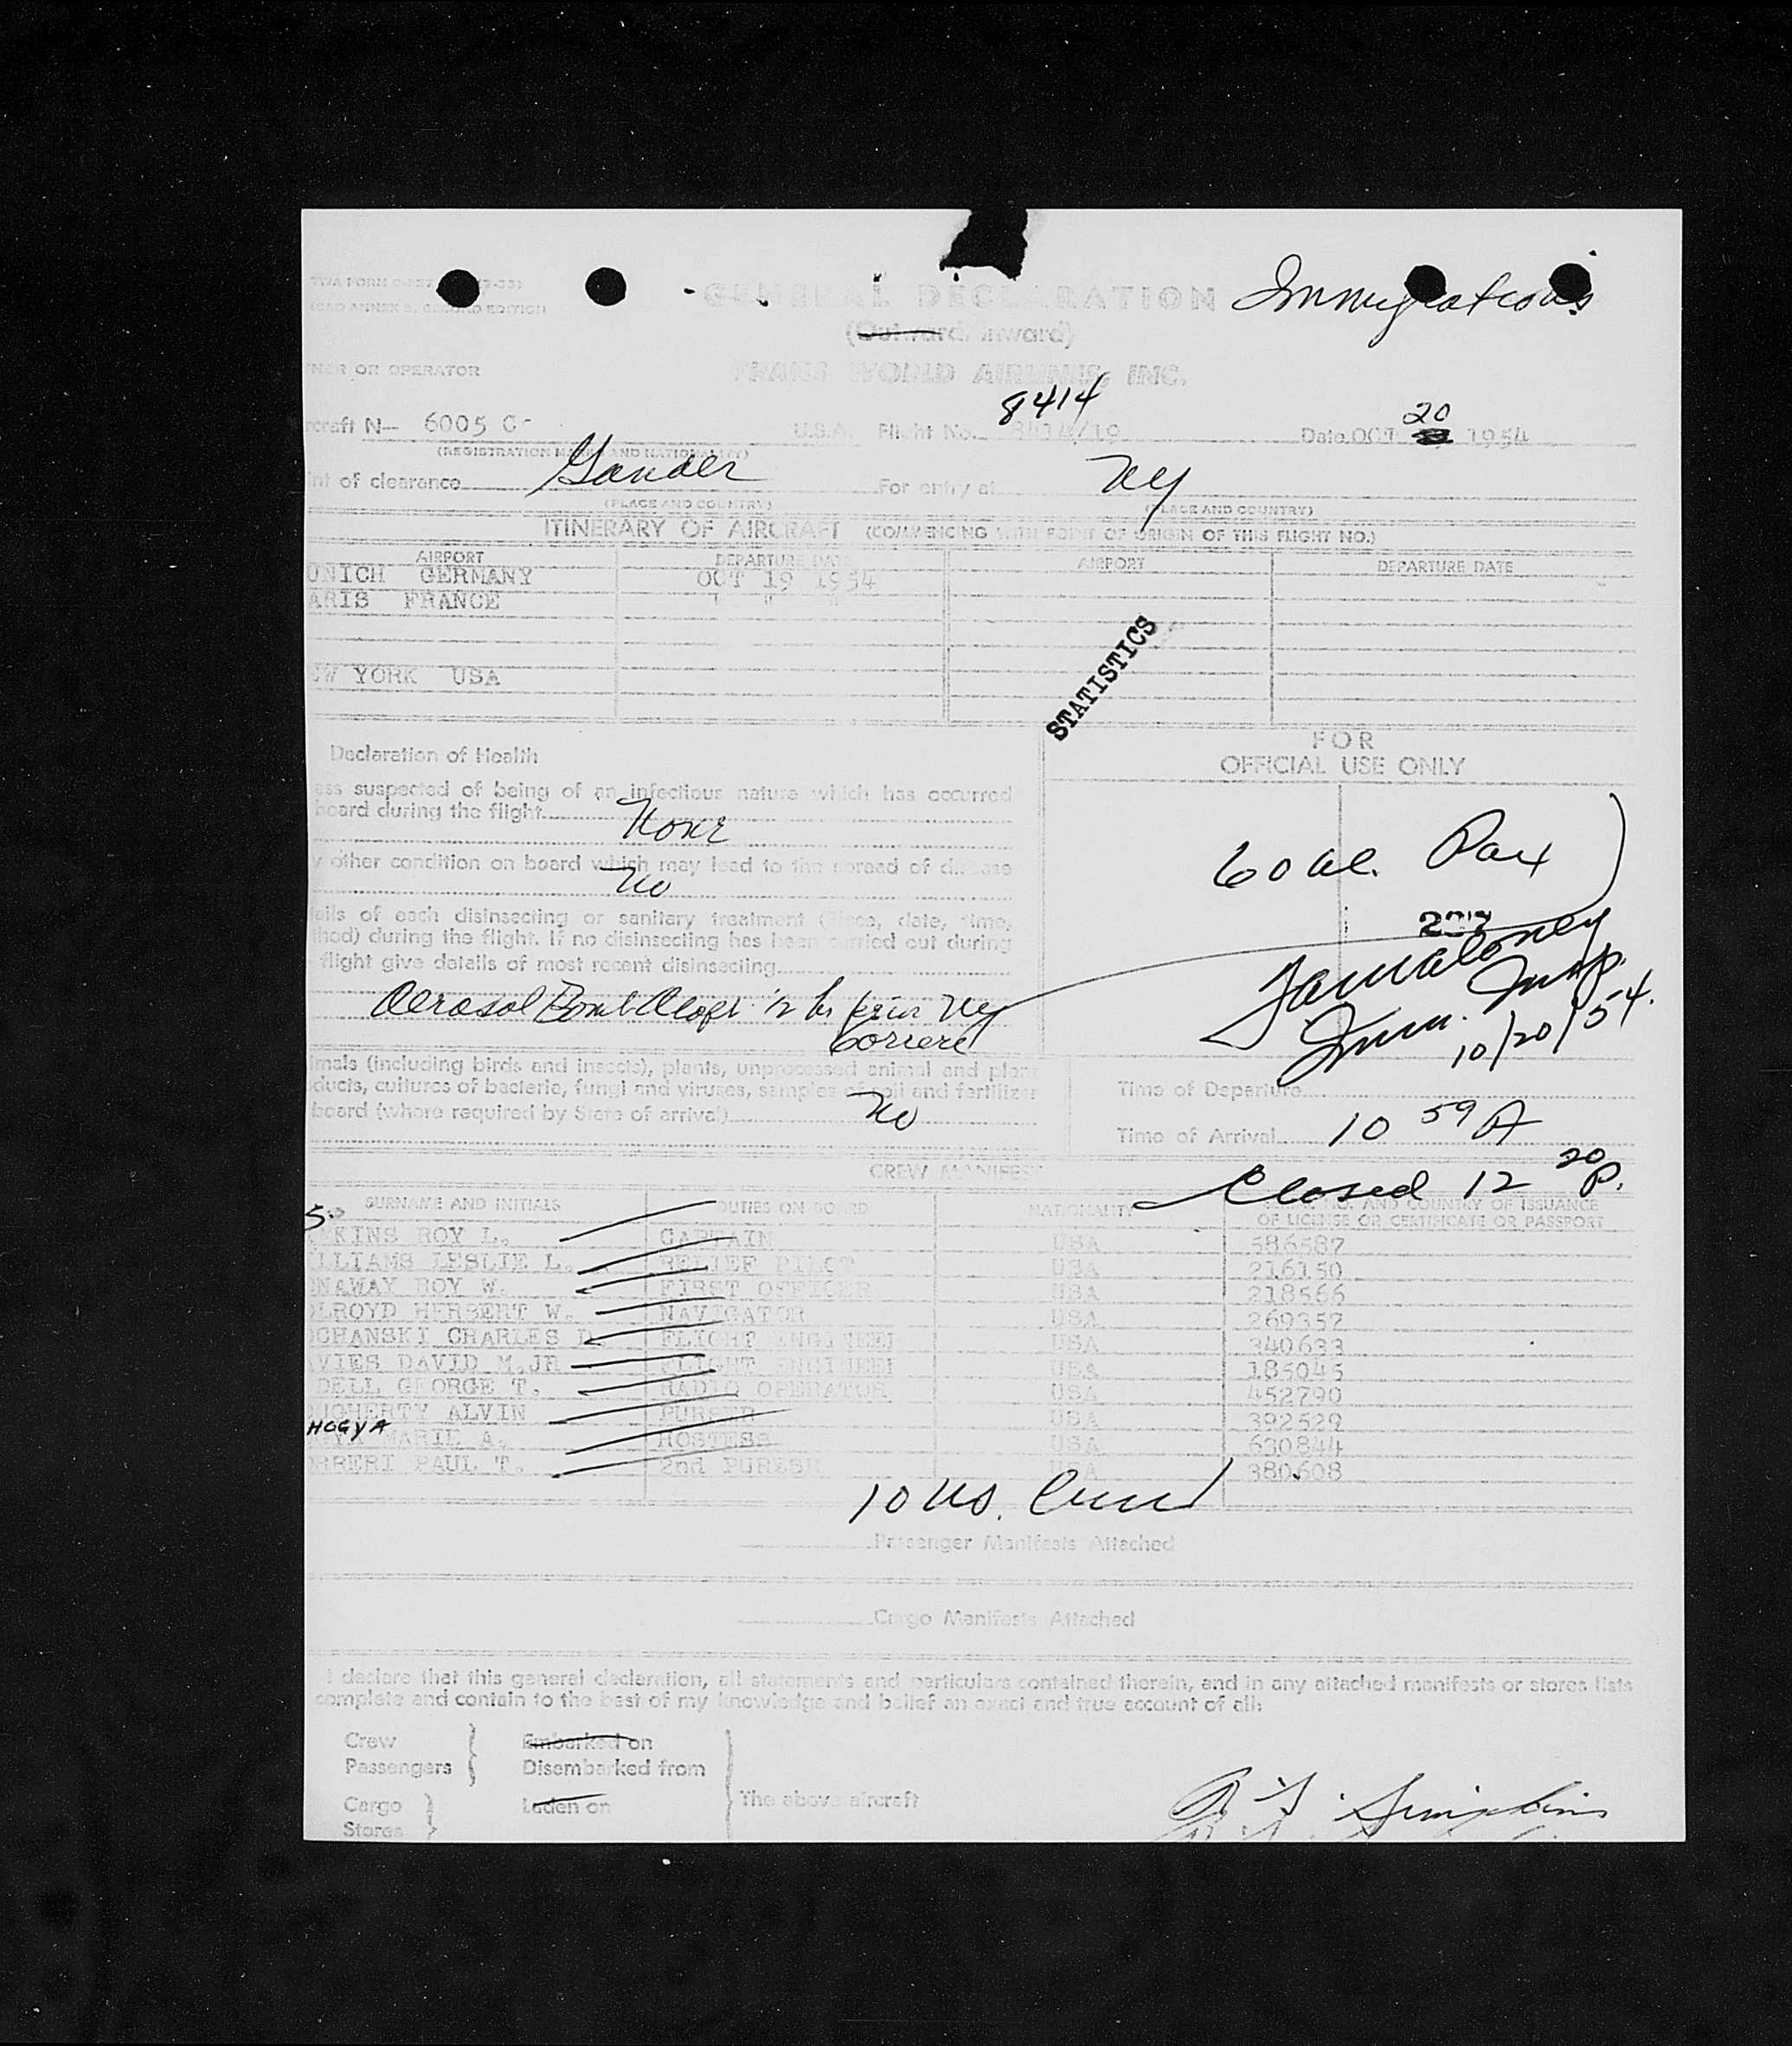 Immigrations
GENERAL DECLARATION
(Outward, Inward)
OR OPERATOR
TRANS WORLD AIRLINES, INC.
8414
20
craft N— 6005 C- U.S.A. Flight No. 8414/19 Date OCT 1954
(REGISTRATION MARKS AND NATIONALITY)
nt of clearance Gander For entry at NY
(PLACE AND COUNTRY) (PLACE AND COUNTRY)
ITINERARY OF AIRCRAFT (COMMENCING WITH POINT OF ORIGIN OF THIS FLIGHT NO.)
AIRPORT DEPARTURE DATE AIRPORT DEPARTURE DATE
UNICH GERMANY OCT 19 1954
ARIS FRANCE " " "
EW YORK USA
STATISTICS
Declaration of Health
FOR
OFFICIAL USE ONLY
ess suspected of being of an infectious nature which has occurred
board during the flight
None
y other condition on board which may lead to the spread of disease
No
60 al. Pax
ails of each disinsecting or sanitary treatment (place, date, time,
thod) during the flight. If no disinsecting has been carried out during
flight give details of most recent disinsecting
Insp.
Imm.
10/20/54.
Aerosol Bomb 12 hr prior NY
imals (including birds and insects), plants, unprocessed animal and plant
oducts, cultures of bacteria, fungi and viruses, samples of soil and fertilizer
board (where required by State of arrival) No
Time of Departure
Time of Arrival 10 59 A
CREW MANIFEST
Closed 12 20 P.
SURNAME AND INITIALS DUTIES ON BOARD NATIONALITY SERIAL NO. AND COUNTRY OF ISSUANCE
OF LICENSE OR CERTIFICATE OR PASSPORT
PKINS ROY L. CAPTAIN USA 586587
ILLIAMS LESLIE L. RELIEF PILOT USA 216150
NAWAY ROY W. FIRST OFFICER USA 218566
LROYD HERBERT W. NAVIGATOR USA 269357
OCHANSKI CHARLES FLIGHT ENGINEER USA 340633
AVIES DAVID M.JR FLIGHT ENGINEER USA 185045
DELL GEORGE T. RADIO OPERATOR USA 452790
OHERTY ALVIN PURSER USA 392529
HOGYA
MARIE A. HOSTESS USA 630844
RBERI PAUL T. 2nd PURESR USA 380608
10 US. Crew
Passenger Manifests Attached
Cargo Manifests Attached
I declare that this general declaration, all statements and particulars contained therein, and in any attached manifests or stores lists
complete and contain to the best of my knowledge and belief an exact and true account of all:
Crew Embarked on
Passengers Disembarked from
The above aircraft
Cargo Laden on
Stores
R L Simpkins